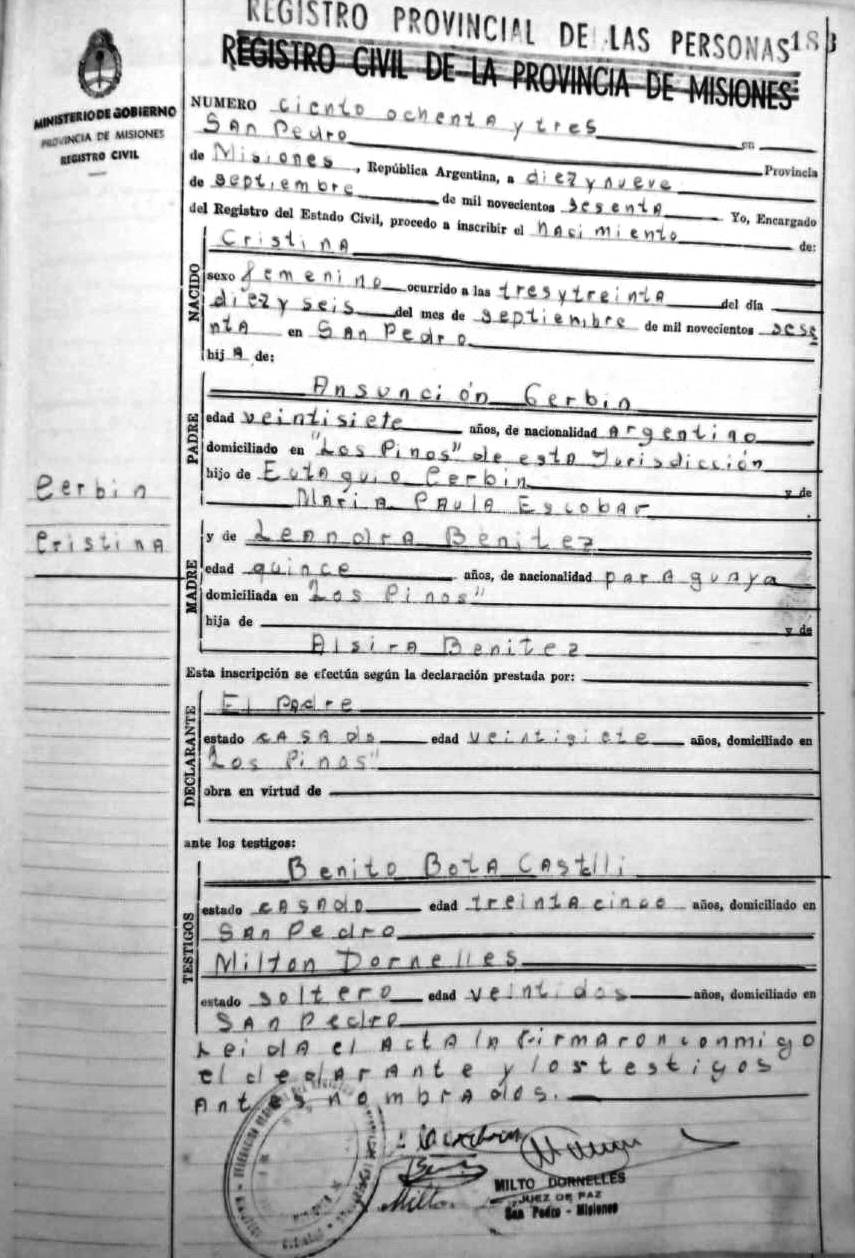 REGISTRO PROVINCIAL DE LAS PERSONAS 183
REGISTRO CIVIL DE LA PROVINCIA DE MISIONES
MINISTERIO DE GOBIERNO
PROVINCIA DE MISIONES
REGISTRO CIVIL
NUMERO ciento ochenta y tres en
San Pedro Provincia
de Misiones, República Argentina, a diez y nueve
de septiembre de mil novecientos sesenta Yo, Encargado
del Registro del Estado Civil, procedo a inscribir el nacimiento de:
NACIDO
Cristina
sexo femenino ocurrido a las tres y treinta del día
diez y seis del mes de septiembre de mil novecientos sese
nta en San Pedro
hija de:
PADRE
Ansunción Cerbin
edad veintisiete años, de nacionalidad Argentino
domiciliado en "Los Pinos" de esta Jurisdicción
hijo de Eutaquio Cerbin y de
Maria Paula Escobar
Cerbin
Cristina
MADRE
y de Leandra Benitez
edad quince años, de nacionalidad paraguaya
domiciliada en Los Pinos"
hija de y de
Alsira Benitez
Esta inscripción se efectúa según la declaración prestada por:
DECLARANTE
El Padre
estado casado edad veintisiete años, domiciliado en
Los Pinos"
obra en virtud de
ante los testigos:
TESTIGOS
Benito Bota Castlli
estado casado edad treinta cinco años, domiciliado en
San Pedro
Milton Dornelles
estado soltero edad veintidos años, domiciliado en
San Pedro
Leida el acta la firmaron conmigo
el declarante y los testigos
antes nombrados.
Milton
MILTO DORNELLES
JUEZ DE PAZ
San Pedro - Misiones